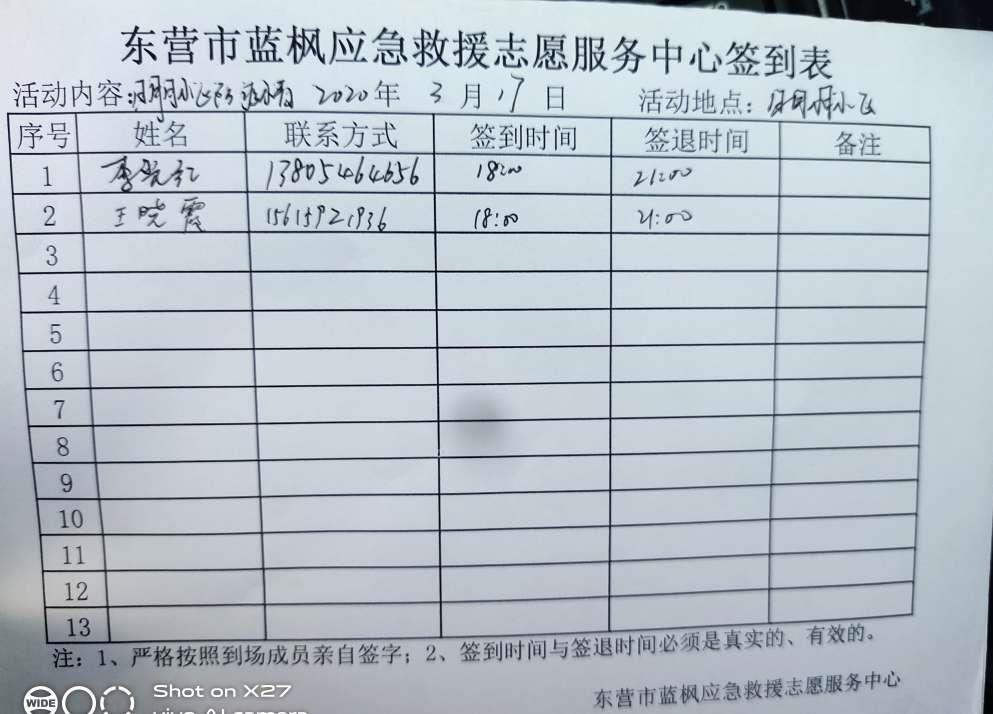 东营市蓝枫应急救援志愿服务中心签到表
活动内容: 2020年 3月17日 活动地点: 小区
序号 姓名 联系方式 签到时间 签退时间 备注
1 李 红 13805464656 18:00 21:00
2 王晓霞 15615921936 18:00 21:00
3
4
5
6
7
8
9
10
11
12
13
注：1、严格按照到场成员亲自签字；2、签到时间与签退时间必须是真实的、有效的。
东营市蓝枫应急救援志愿服务中心
WIDE Shot on X27
vivo AI camera